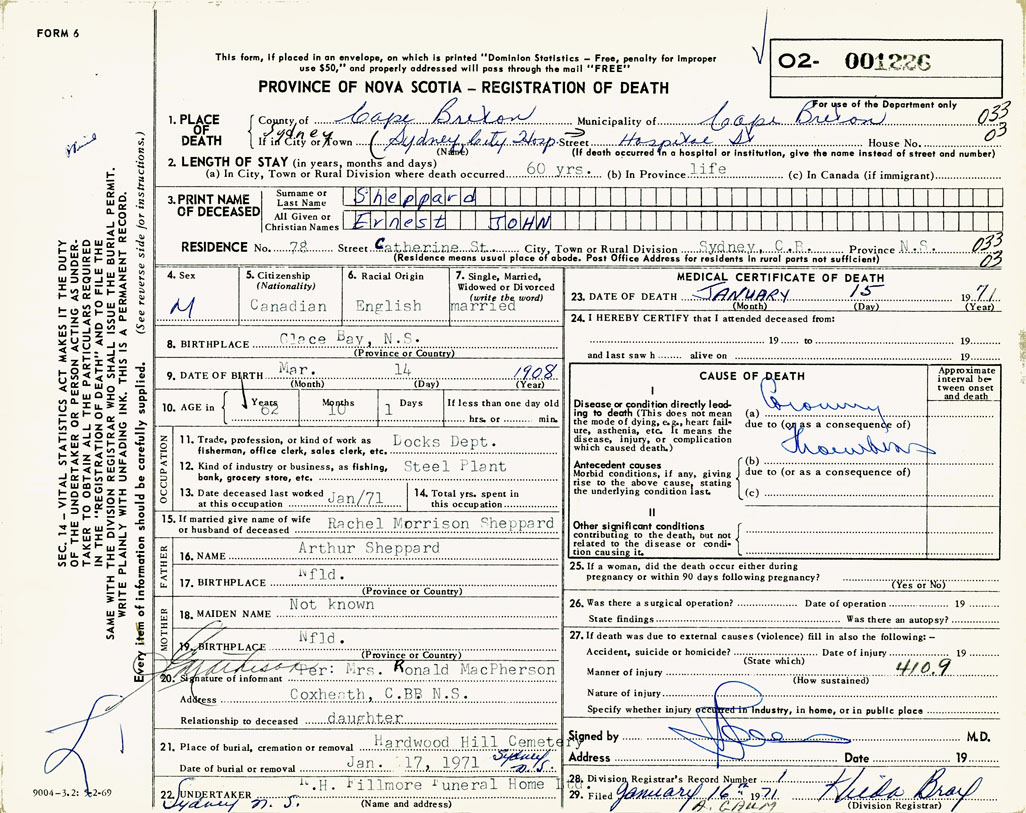 FORM 6
This form, if placed in an envelope, on which is printed "Dominion Statistics – Free, penalty for improper
use $50," and properly addressed will pass through the mail "FREE"
02- 001226
PROVINCE OF NOVA SCOTIA – REGISTRATION OF DEATH
For use of the Department only
1. PLACE OF DEATH
County of Cape Breton Municipality of Cape Breton 033
Sydney
If in City or Town (Sydney City Hosp. Street Hospital St House No. 03
(Name) (If death occurred in a hospital or institution, give the name instead of street and number)
2. LENGTH OF STAY (in years, months and days)
(a) In City, Town or Rural Division where death occurred 60 yrs. (b) In Province life (c) In Canada (if immigrant)
3. PRINT NAME OF DECEASED
Surname or Last Name Sheppard
All Given or Christian Names Ernest JOHN
RESIDENCE No. 78 Street Catherine St. City, Town or Rural Division Sydney, C.B. Province N.S. 033
(Residence means usual place of abode. Post Office Address for residents in rural parts not sufficient) 03
4. Sex
M
5. Citizenship
(Nationality)
Canadian
6. Racial Origin
English
7. Single, Married,
Widowed or Divorced
(write the word)
married
8. BIRTHPLACE Glace Bay, N.S.
(Province or Country)
9. DATE OF BIRTH Mar. 14 1908
(Month) (Day) (Year)
10. AGE in Years Months Days If less than one day old
62 10 1 hrs. or min.
OCCUPATION
11. Trade, profession, or kind of work as
fisherman, office clerk, sales clerk, etc. Docks Dept.
12. Kind of industry or business, as fishing,
bank, grocery store, etc. Steel Plant
13. Date deceased last worked
at this occupation Jan/71
14. Total yrs. spent in
this occupation
15. If married give name of wife
or husband of deceased Rachel Morrison Sheppard
FATHER
16. NAME Arthur Sheppard
17. BIRTHPLACE Nfld.
(Province or Country)
MOTHER
18. MAIDEN NAME Not known
19. BIRTHPLACE Nfld.
(Province or Country)
Per: Mrs. Ronald MacPherson
20. Signature of informant
Address Coxheath, C.BB N.S.
Relationship to deceased daughter
21. Place of burial, cremation or removal Hardwood Hill Cemetery
Sydney N.S.
Date of burial or removal Jan. 17, 1971
22. UNDERTAKER A.H. Fillmore Funeral Home Ltd.
Sydney N.S. (Name and address)
MEDICAL CERTIFICATE OF DEATH
23. DATE OF DEATH JANUARY 15 1971
(Month) (Day) (Year)
24. I HEREBY CERTIFY that I attended deceased from:
19 to 19
and last saw h alive on 19
CAUSE OF DEATH
Approximate
interval between onset
and death
I
Disease or condition directly leading to death (This does not mean
the mode of dying, e.g., heart failure, asthenia, etc. It means the
disease, injury, or complication
which caused death.)
(a) Coronary
due to (or as a consequence of)
Thrombosis
Antecedent causes
Morbid conditions, if any, giving
rise to the above cause, stating
the underlying condition last.
(b)
due to (or as a consequence of)
(c)
II
Other significant conditions
contributing to the death, but not
related to the disease or condition causing it.
25. If a woman, did the death occur either during
pregnancy or within 90 days following pregnancy?
(Yes or No)
26. Was there a surgical operation? Date of operation 19
State findings Was there an autopsy?
27. If death was due to external causes (violence) fill in also the following:–
Accident, suicide or homicide? Date of injury 19
(State which)
Manner of injury 410.9
(How sustained)
Nature of injury
Specify whether injury occurred in industry, in home, or in public place
Signed by M.D.
Address Date 19
28. Division Registrar's Record Number 1
29. Filed January 16th 1971 Hilda Bray
(Division Registrar)
SEC. 14 – VITAL STATISTICS ACT MAKES IT THE DUTY
OF THE UNDERTAKER OR PERSON ACTING AS UNDERTAKER TO OBTAIN ALL THE PARTICULARS REQUIRED
IN THE "REGISTRATION OF DEATH" AND TO FILE THE
SAME WITH THE DIVISION REGISTRAR WHO SHALL ISSUE THE BURIAL PERMIT.
WRITE PLAINLY WITH UNFADING INK. THIS IS A PERMANENT RECORD.
Every item of information should be carefully supplied. (See reverse side for instructions.)
9004-3.2: 9-2-69